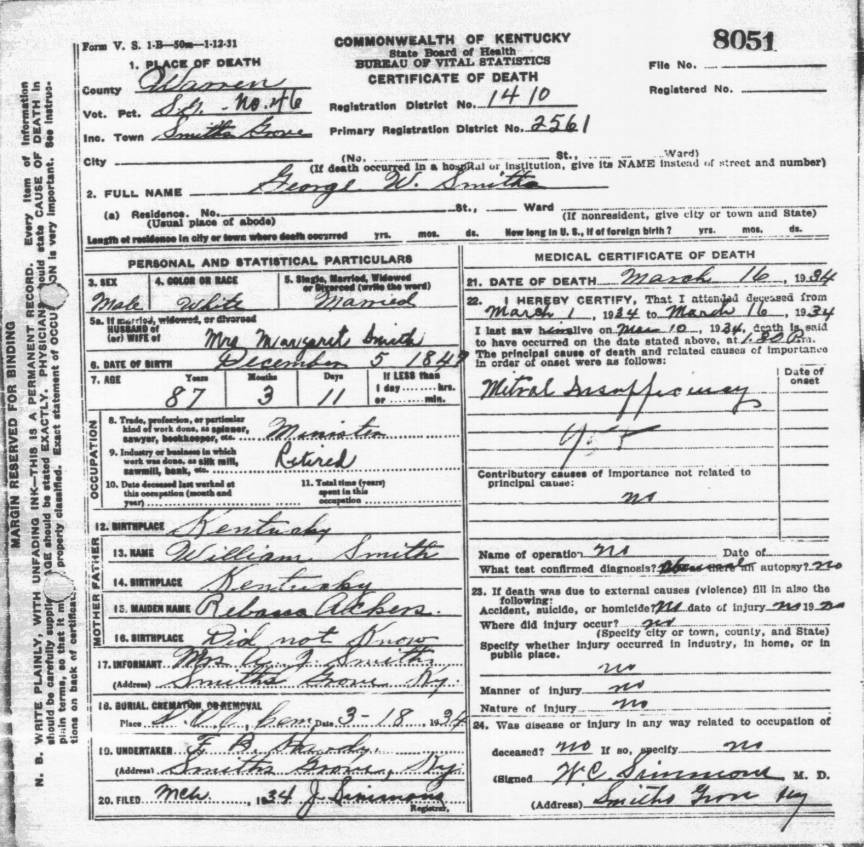 8051
Form V. S. 1-B—50m—1-12-31
COMMONWEALTH OF KENTUCKY
State Board of Health
BUREAU OF VITAL STATISTICS
CERTIFICATE OF DEATH
File No.
Registered No.
1. PLACE OF DEATH
County Warren
Vot. Pct. S.G. No. 46
Registration District No. 1410
Inc. Town Smiths Grove
Primary Registration District No. 2561
City (No. St., Ward)
(If death occurred in a hospital or institution, give its NAME instead of street and number)
2. FULL NAME George W. Smith
(a) Residence. No. St., Ward
(Usual place of abode) (If nonresident, give city or town and State)
Length of residence in city or town where death occurred yrs. mos. ds. How long in U. S., if of foreign birth? yrs. mos. ds.
PERSONAL AND STATISTICAL PARTICULARS
3. SEX 4. COLOR OR RACE 5. Single, Married, Widowed
or Divorced (write the word)
Male White Married
5a. If married, widowed, or divorced
HUSBAND of
(or) WIFE of Mrs Margaret Smith
6. DATE OF BIRTH December 5 184
7. AGE Years Months Days If LESS than
1 day hrs.
or min.
87 3 11
OCCUPATION
8. Trade, profession, or particular
kind of work done, as spinner,
sawyer, bookkeeper, etc. Minister
9. Industry or business in which
work was done, as silk mill,
sawmill, bank, etc. Retired
10. Date deceased last worked at
this occupation (month and
year)
11. Total time (years)
spent in this
occupation
12. BIRTHPLACE Kentucky
FATHER
13. NAME William Smith
14. BIRTHPLACE Kentucky
MOTHER
15. MAIDEN NAME Akers.
16. BIRTHPLACE Did not Know
17. INFORMANT Mrs Smith
(Address) Smiths Grove Ky.
18. BURIAL, CREMATION, OR REMOVAL
Place Cem Date 3-18, 1934
19. UNDERTAKER F. B.
(Address) Smiths Grove, Ky
20. FILED Mch, 1934 J Simmons
Registrar.
MEDICAL CERTIFICATE OF DEATH
21. DATE OF DEATH March 16, 1934
22. I HEREBY CERTIFY, That I attended deceased from
March 1, 1934 to March 16, 1934
I last saw him alive on Mar 10, 1934, death is said
to have occurred on the date stated above, at 1.30 P.m.
The principal cause of death and related causes of importance
in order of onset were as follows:
Date of
onset
Mitral Insufficiency
Contributory causes of importance not related to
principal cause:
no
Name of operation no Date of
What test confirmed diagnosis? an autopsy? no
23. If death was due to external causes (violence) fill in also the
following:
Accident, suicide, or homicide? no date of injury no 19 no
Where did injury occur? no
(Specify city or town, county, and State)
Specify whether injury occurred in industry, in home, or in
public place.
no
Manner of injury no
Nature of injury no
24. Was disease or injury in any way related to occupation of
deceased? no If so, specify no
(Signed W. C. Simmons M. D.
(Address) Smiths Grove Ky
MARGIN RESERVED FOR BINDING
N. B. WRITE PLAINLY, WITH UNFADING INK—THIS IS A PERMANENT RECORD. Every item of information
should be carefully supplied. AGE should be stated EXACTLY. PHYSICIANS should state CAUSE OF DEATH in
plain terms, so that it may be properly classified. Exact statement of OCCUPATION is very important. See instruc-
tions on back of certificate.